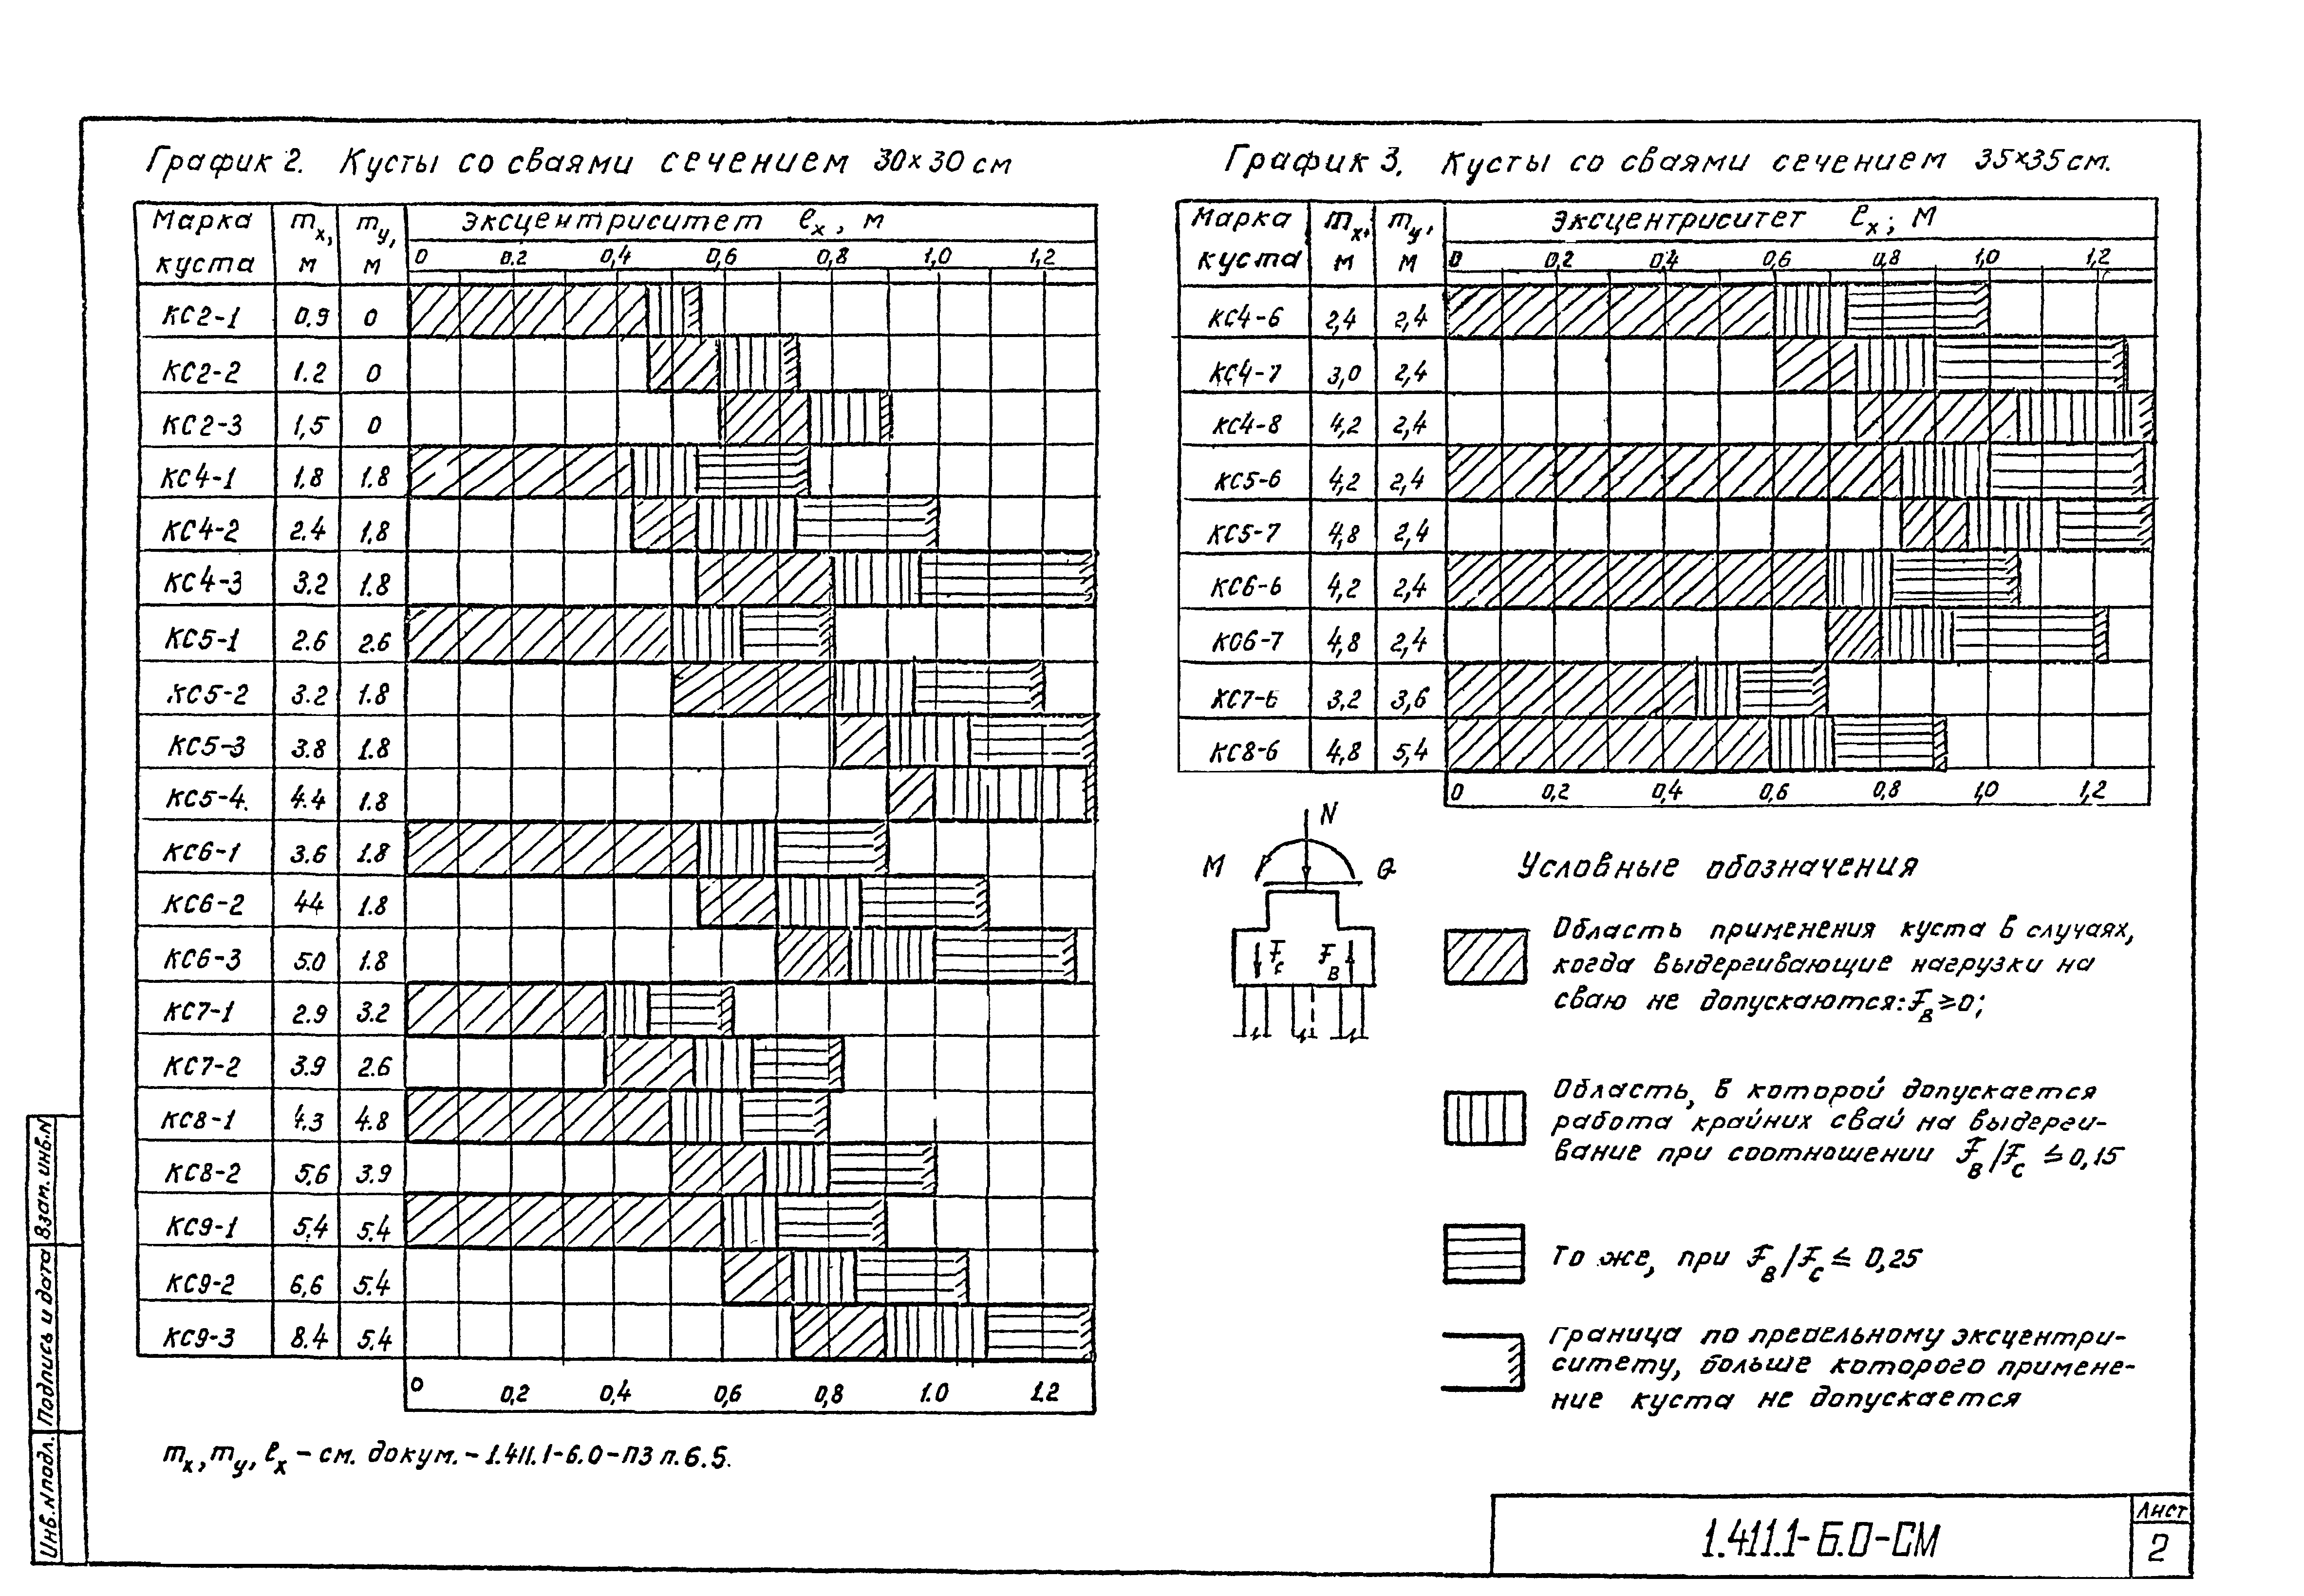 График 2. Кусты со сваями сечением 30×30 см
Марка куста | mx, м | my, м | Эксцентриситет ex, м
0 0.2 0,4 0,6 0,8 1,0 1,2
КС2-1 0,9 0
КС2-2 1.2 0
КС2-3 1,5 0
КС4-1 1,8 1.8
КС4-2 2.4 1,8
КС4-3 3.2 1.8
КС5-1 2.6 2.6
КС5-2 3.2 1.8
КС5-3 3.8 1.8
КС5-4. 4.4 1.8
КС6-1 3.6 1.8
КС6-2 44 1.8
КС6-3 5.0 1.8
КС7-1 2.9 3.2
КС7-2 3.9 2.6
КС8-1 4.3 4.8
КС8-2 5,6 3.9
КС9-1 5,4 5.4
КС9-2 6,6 5.4
КС9-3 8.4 5.4
0 0,2 0,4 0,6 0,8 1.0 1.2
mx, my, ex – см. докум. – 1.411.1-6.0-ПЗ п.6.5.
График 3. Кусты со сваями сечением 35×35 см.
Марка куста | mx, м | my, м | Эксцентриситет ex; м
0 0,2 0,4 0,6 0,8 1,0 1,2
КС4-6 2,4 2,4
КС4-7 3,0 2,4
КС4-8 4,2 2,4
КС5-6 4,2 2,4
КС5-7 4,8 2,4
КС6-6 4,2 2,4
КС6-7 4,8 2,4
КС7-6 3,2 3,6
КС8-6 4,8 5,4
0 0,2 0,4 0,6 0,8 1,0 1,2
N
M Q
Fc Fв
Условные обозначения
Область применения куста в случаях,
когда выдергивающие нагрузки на
сваю не допускаются: Fв ≥ 0;
Область, в которой допускается
работа крайних свай на выдерги-
вание при соотношении Fв/Fс ≤ 0,15
То же, при Fв/Fс ≤ 0,25
Граница по предельному эксцентри-
ситету, больше которого примене-
ние куста не допускается
Инв.N подл. Подпись и дата Взам. инв.N
1.411.1-6.0-СМ
Лист
2